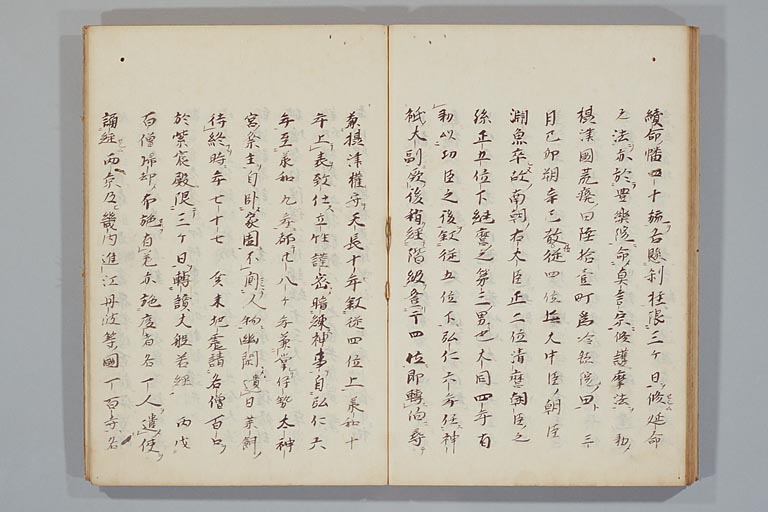 續命幡四十旒名懸刹柱限三ケ日修延命
之法亦於豊樂院命眞言宗修護摩法勅
摂津國荒廢田陸拾壹町爲冷然院田 三
月己卯朔辛巳散位從四位上大中臣朝臣
淵魚卒故南朝右大臣正二位清麿朝臣之
孫正五位下継麿之第三男也大同四年有
勅以功臣之後叙從五位下弘仁六年任神
祇大副厥後稍経階級至下四位即轉伯尋
兼摂津權守天長十年叙從四位上承和十
年上表致仕立性謹密暗練神事自弘仁六
年至承和九年都凡八ケ年兼掌伊勢太神
宮祭主自卧家園不關人物幽閑遺日羔
待終時年七十七 癸未地震請名僧百口
於紫宸殿限三ケ日轉讀大般若經 丙戌
百僧歸却布施自 亦施度者名一人遣使
誦経兩京及畿内進江丹波等國一百寺名